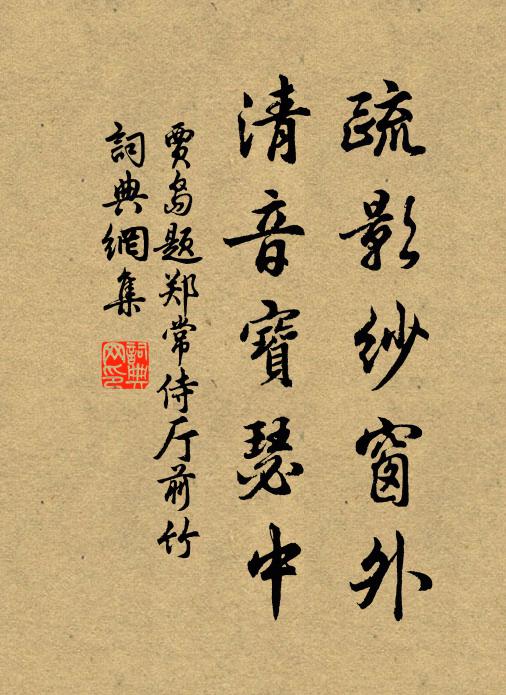 疏影紗窗外
清音寶瑟中
賈島题郑常侍厅前竹
詞典網集
詞典
网印